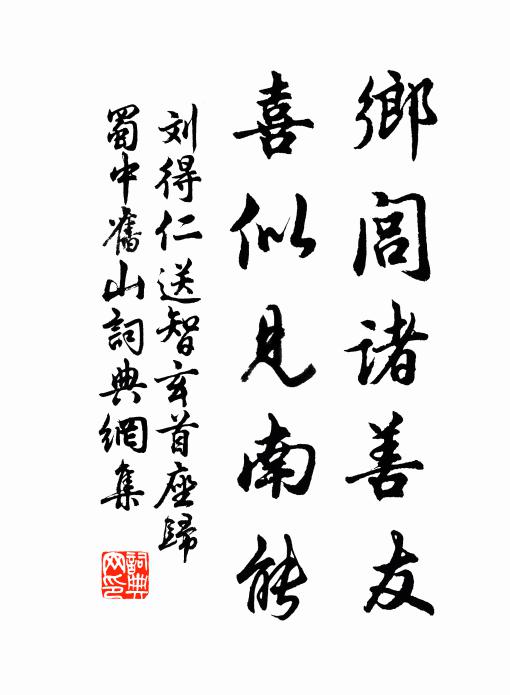 鄉閭諸善友
喜似見南能
刘得仁送智玄首座歸
蜀中舊山詞典網集
詞典网印